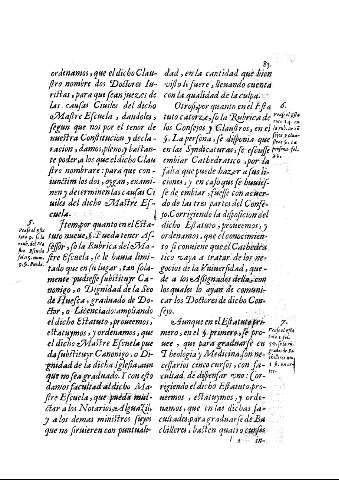 83.
ordenamos, que el dicho Clau-
stro nombre dos Doctores Iu-
ristas, para que sean juezes de
las causas Ciuiles del dicho
Mastre Escuela, dandoles,
segun que nos por el tenor de
nuestra Constitucion y decla-
racion, damos, pleno y bastan-
te poder, a los que el dicho Clau
stro nombrare: para que con-
iunctim los dos, oygan, exami-
nen y determinen las causas Ci
uiles del dicho Mastre Es-
cuela.
Item por quanto en el Esta-
tuto nueue, §. Pueda tener As-
sessor, so la Rubrica del Ma-
stre Escuela, se le hauia limi-
tado que en su lugar, tan sola-
mente pudiesse substituyr Ca-
nonigo, o Dignidad de la Seo
de Huesca, graduado de Do-
ctor, o Licenciado: ampliando
el dicho Estatuto, proueemos,
estatuymos, y ordenamos, que
el dicho Mastre Escuela pue
da substituyr Canonigo, o Di-
gnidad de la dicha Iglesia, aun
que no sea graduado. I con esto
damos facultad al dicho Ma-
stre Escuela, que pueda mul-
ctar a los Notarios, Alguazil,
y a los demas ministros suyos
que no siruieren con puntuali-
5.
dad, en la cantidad que bien
visto le fuere, lleuando cuenta
con la qualidad de la culpa.
Otrosi, por quanto en el Esta
tuto catorze, so la Rubrica de
los Consejos y Claustros, en el
§. La persona, se disponia que
en las Syndicaturas, se escusse
embiar Cathedratico, por la
falta que puede hazer a sus li-
ciones, y en caso que se huuies-
se de embiar, fuesse con acuer-
do de las tres partes del Conse-
jo. Corrigiendo la disposicion del
dicho Estatuto, proueemos, y
ordenamos, que el conocimien-
to si conuiene que el Cathedra
tico vaya a tratar de los ne-
gocios de la Vniuersidad, que-
de a los Assignados della, con
los quales lo ayan de comuni-
car los Doctores de dicho Con
sejo.
Aunque en el Estatuto pri-
mero, en el §. primero, se pro-
uee, que para graduarse en
Theologia y Medicina, son ne-
cessarios cinco cursos, con fa-
cultad de dispensar vno: Cor-
rigiendo el dicho Estatuto, pro-
ueemos, estatuymos, y orde-
namos, que en las dichas fa-
cultades para graduarse de Ba
chilleres, basten quatro cursos
in-
6.
7.